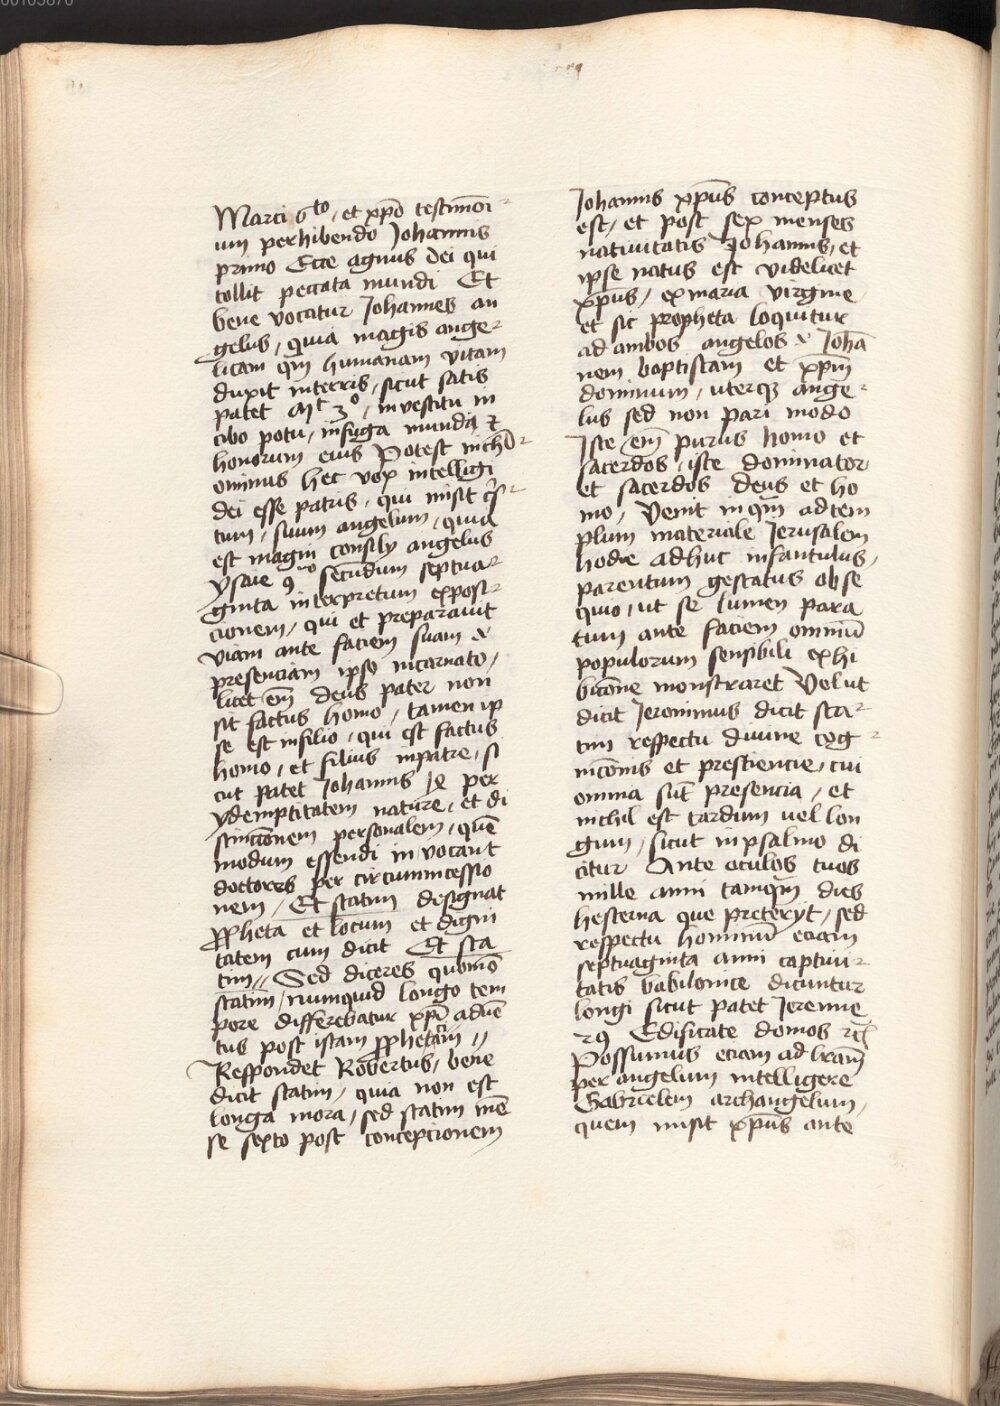 Marci 6to, et xp̄o testimōi
um perhibendo Johannis
primo Ecce agnus dei qui
tollit peccata mundi Et
bene vocatur Johannes an
gelus, quia magis ange
licam qm̄ humanam vitam
duxit interris, sicut satis
patet Mt 3o, investitu in
cibo potu, infuga mundj et
honorum eius Potest
ominus hec vox intelligi
dei esse patris, qui misit
tum, suum angelum, quia
est magni consily angelus
Ysaie 9no secundum septua
ginta interpretum exposi
cionem, qui et preparauit
viam ante faciem suam
presenciam ipso incarnato,
licet em̄ deus pater non
sit factus homo, tamen ip
se est infilio, qui est factus
homo, et filius inpatre, si
cut patet Johannis per
ydemptitatem nature, et di
stinccōnem personalem, quē
modum essendi in vocant
doctores per circumincessio
nem, Et statim designat
ꝓpheta et locum et digni
tatem cum dicit Et sta
tim,, Sed diceres quōmō
statim, numquid longo tem
pore differebatur xp̄i aduē
tus post istam ꝓphetiam,,
Respondet Robertus, bene
dicit statim, quia non est
longa mora, sed statim mē
se sexto post concepcionem
Johannis xp̄us conceptus
est, et post sex menses
natiuitatis Johannis, et
ipse natus est videlicet
xp̄us, exmaria virgine
et sic propheta loquitur
ad ambos angelos Johā
nem baptistam et xp̄m
dominum, uterqꝫ ange
lus sed non pari modo
Iste em̄ purus homo et
sacerdos, iste dominator
et sacerdos deus et ho
mo, Venit inqm̄ adtem
plum materiale Jerusalem
hodie adhuc infantulus,
parentum gestatus obse
quio, ut se lumen para
tum ante faciem omniū
populorum sensibili exhi
bicōne monstraret Velut
dicit Jeronimus dicit sta
tim respectu diuine cog
nicōnis et presciencie, cui
omnia sūt presencia, et
nichil est tardum uel lon
gum, sicut inpsalmo di
citur Ante oculos tuos
mille anni tamqm̄ dies
hesterna que preteryt, sed
respectu hominū eciam
septuaginta anni captiui
tatis babilonice dicuntur
longi sicut patet Jeremie
29 Edificate domos
Possumus eciam ad
per angelum intelligere
Gabrielem archangelum,
quem misit xp̄us ante